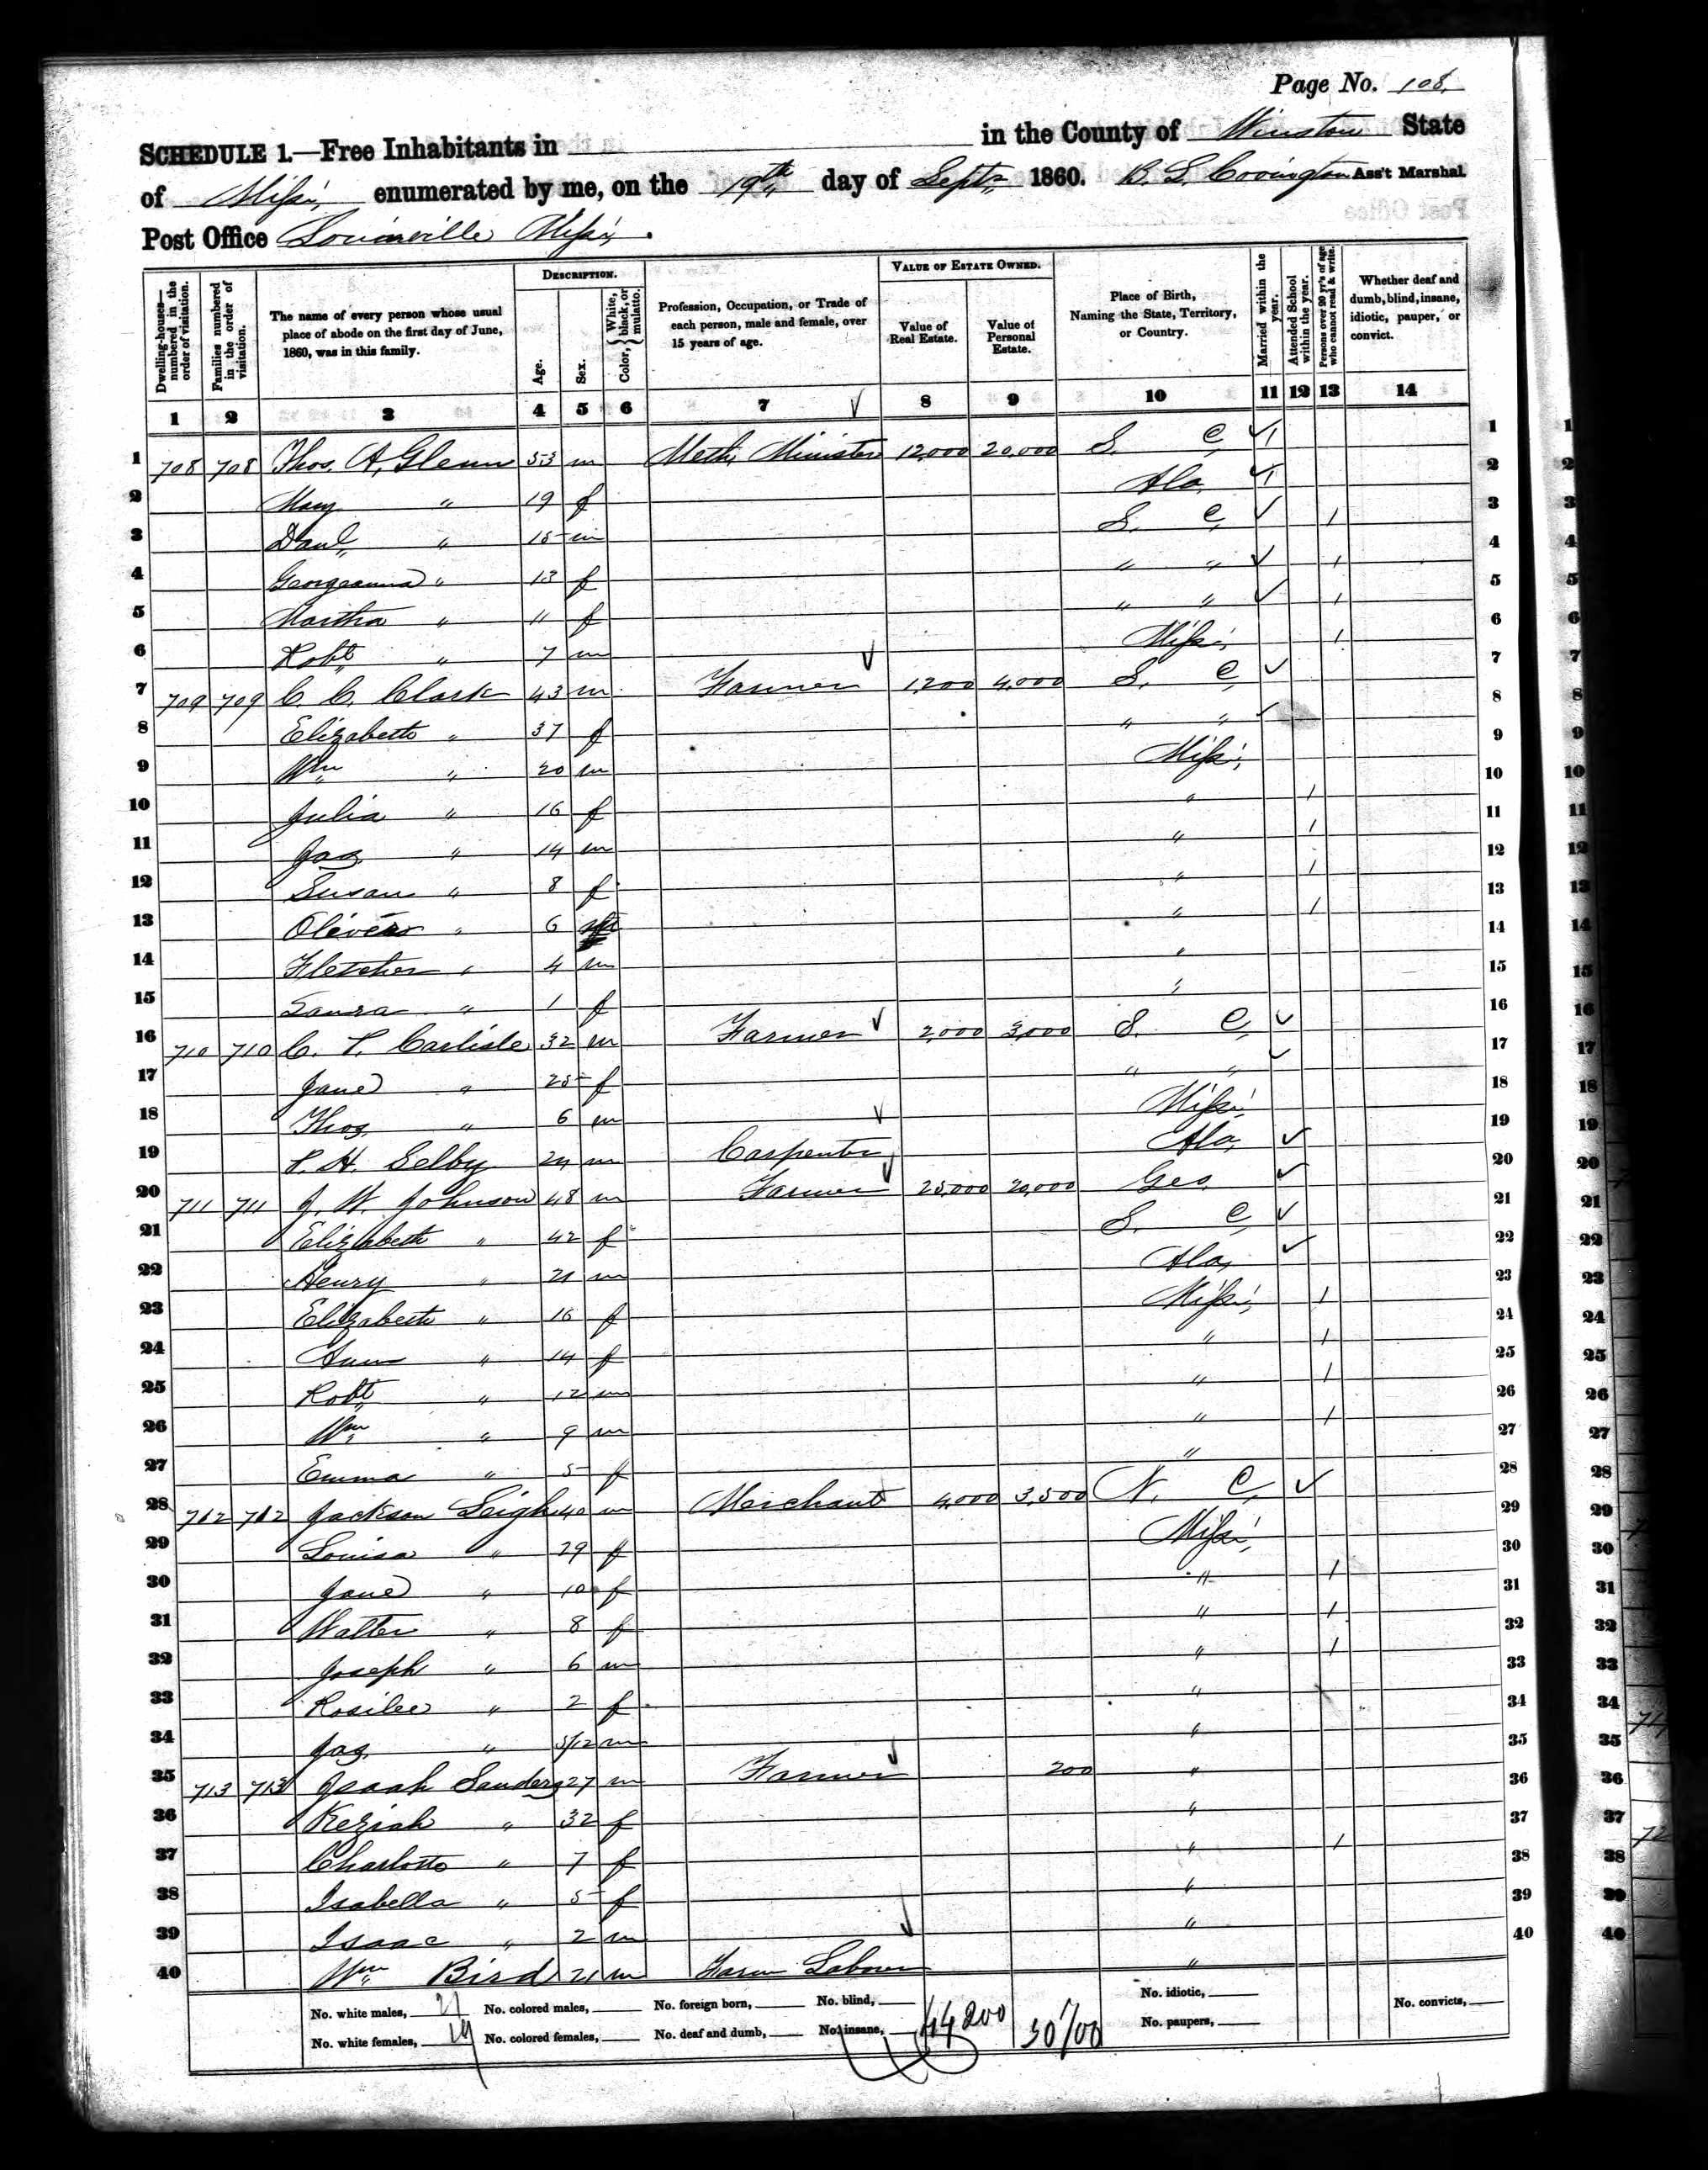 Page No. 108.
SCHEDULE 1.—Free Inhabitants in in the County of Winston State
of Missi, enumerated by me, on the 19th day of Sept. 1860. B. L. Covington Ass't Marshal.
Post Office Louisville Missi,
Dwelling-houses—numbered in the order of visitation.
Families numbered in the order of visitation.
The name of every person whose usual place of abode on the first day of June, 1860, was in this family.
DESCRIPTION.
Age.
Sex.
Color, { White, black, or mulatto. }
Profession, Occupation, or Trade of each person, male and female, over 15 years of age.
VALUE OF ESTATE OWNED.
Value of Real Estate.
Value of Personal Estate.
Place of Birth, Naming the State, Territory, or Country.
Married within the year.
Attended School within the year.
Persons over 20 y'rs of age who cannot read & write.
Whether deaf and dumb, blind, insane, idiotic, pauper, or convict.
1 2 3 4 5 6 7 8 9 10 11 12 13 14
1 708 708 Thos. A. Glenn 53 m Meth. Minister 12,000 20,000 S. C. 1 1
2 Mary " 19 f Ala. 1 2
3 Danl. " 15 m S. C. 1 3
4 Georgeanna " 13 f " " 1 4
5 Martha " 11 f " " 1 5
6 Robt. " 7 m Missi, 1 6
7 709 709 C. C. Clark 43 m Farmer 1,200 4,000 S. C. 7
8 Elizabeth " 37 f " " 8
9 Wm " 20 m Missi, 9
10 Julia " 16 f " 1 10
11 Jas. " 14 m " 1 11
12 Susan " 8 f " 1 12
13 Oliver " 6 " 1 13
14 Fletcher " 4 m " 14
15 Laura " 1 f " 15
16 710 710 C. P. Carlisle 32 m Farmer 2,000 3,000 S. C. 16
17 Jane " 25 f " " 17
18 Thos. " 6 m Missi, 18
19 P. H. Selby 24 m Carpenter Ala. 19
20 711 711 J. W. Johnson 48 m Farmer 25,000 20,000 Geo. 20
21 Elizabeth " 42 f S. C. 21
22 Henry " 21 m Ala, 22
23 Elizabeth " 16 f Missi, 1 23
24 " 14 f " 1 24
25 Robt. " 12 m " 1 25
26 Wm " 9 m " 1 26
27 Emma " 5 f " 27
28 712 712 Jackson Leigh 40 m Merchant 4,000 3,500 N. C. 28
29 Louisa " 29 f Missi, 29
30 Jane " 10 f " 1 30
31 Walter " 8 f " 1 31
32 Joseph " 6 m " 1 32
33 Rosilee " 2 f " 33
34 Jas. " 5/12 m " 34
35 713 713 Isaah Sanders 27 m Farmer 200 " 35
36 Keziah " 32 f " 36
37 Charlotte " 7 f " 1 37
38 Isabella " 5 f " 38
39 Isaac " 2 m " 39
40 Wm Bird 21 m Farm Laborer " 40
No. white males, 21 No. colored males, No. foreign born, No. blind, No. idiotic, No. convicts,
No. white females, 19 No. colored females, No. deaf and dumb, No. insane, 44200 50700 No. paupers,